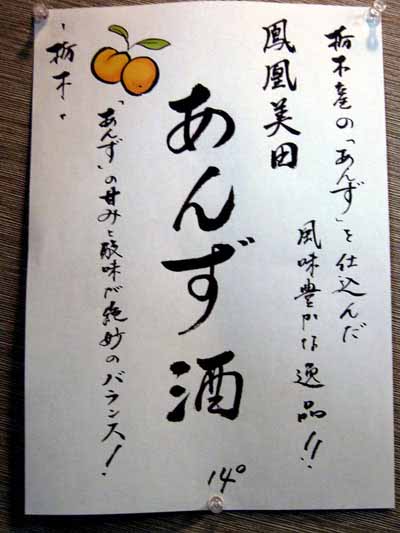 栃木産の「あんず」を仕込んだ
風味豊かな逸品!!
鳳凰美田
あんず酒
14°
「あんず」の甘みと酸味が絶妙のバランス!
-栃木-